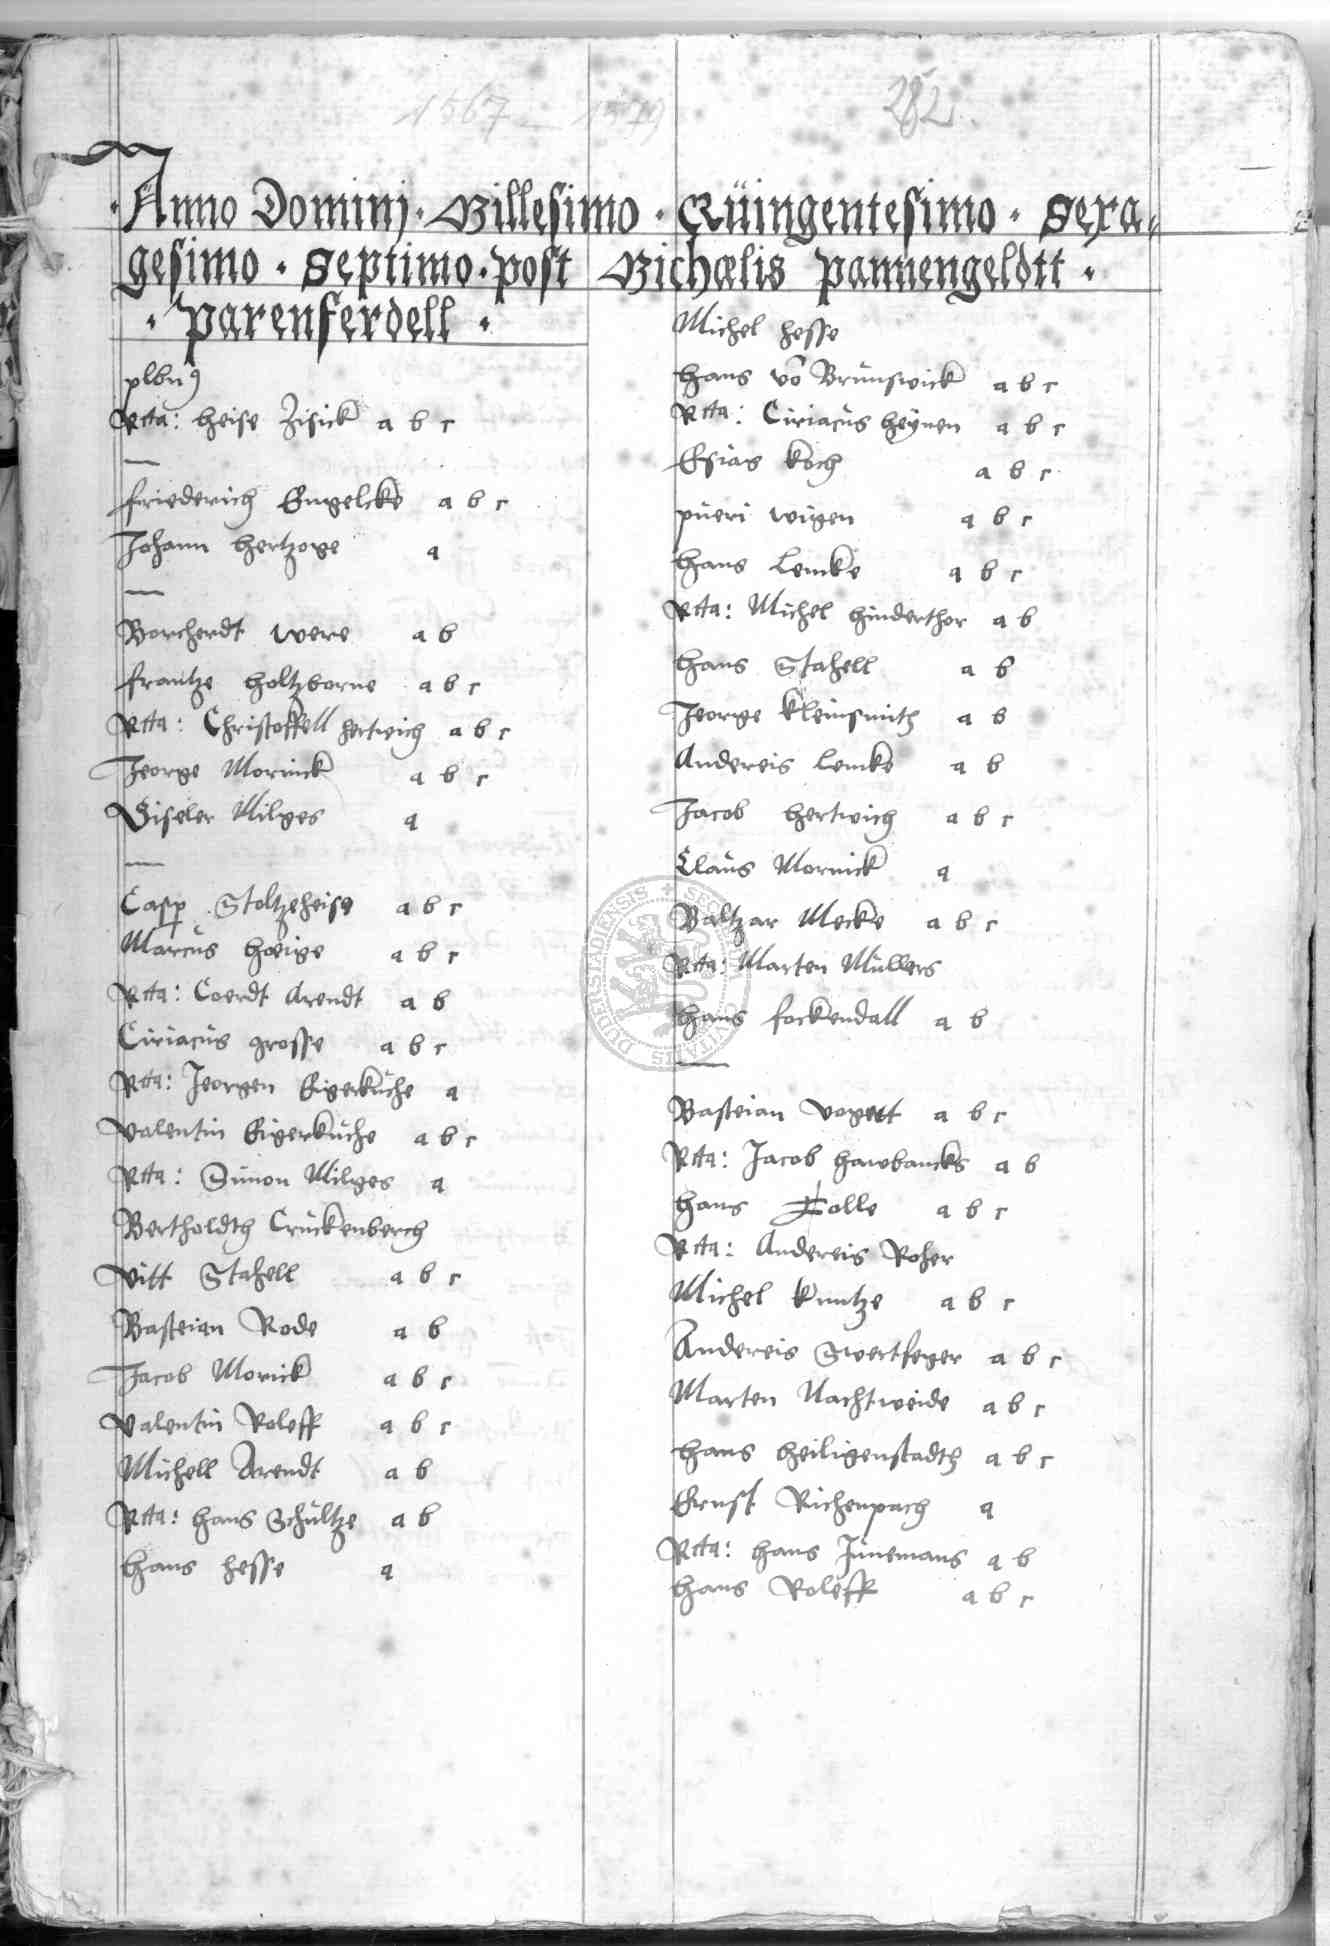 1567 – 1579
282
Anno Dominj · Millesimo · Quingentesimo · Sexa=
gesimo · Septimo · post Michælis pannengeldtt ·
· Parenferdell ·
plbn9
Rcta: Heise Zisick a b c
—
Friederich Engelcke a b c
Johann Hertzoge a
—
Borcherdt Were a b
Frantze Holtzborne a b c
Rcta: Christoffell Hertwich a b c
Jeorge Mornick a b c
Giseler Milges a
—
Casp Stoltzeheise a b c
Marcus Hœige a b c
Rcta: Coerdt Arendt a b
Ciriacus Grosse a b c
Rcta: Jeorgen Eigerkuche a
Valentin Eigerkuche a b c
Rcta: Simon Milges a
Bertholdth Cruckenberch
Vitt Stahell a b c
Basteian Rode a b
Jacob Morick a b c
Valentin Roleff a b c
Michell Arendt a b
Rcta: Hans Schultze a b
Hans Hesse a
Michel Hesse
Hans vo Brunswick a b c
Rcta: Ciriacus Heynen a b c
Esias Koch a b c
pueri Wigen a b c
Hans Lemke a b c
Rcta: Michel Hinderthor a b
Hans Stahell a b
Jeorge Kleinsmith a b
Andereis Lemke a b
Jacob Hertwich a b c
Claus Mornick a
Baltzar Mecke a b c
SECRETUM CIVITATIS DUDERSTADIENSIS
Rcta: Marten Mullers
Hans Fockendall a b
—
Basteian Vogett a b c
Rcta: Jacob Hawbancks a b
Hans Tolle a b c
Rcta: Andereis Roher
Michel Kuntze a b c
Andereis Swertfeger a b c
Marten Nachtweide a b c
Hans Heiligenstadth a b c
Ernst Richenpach a
Rcta: Hans Junemans a b
Hans Roleff a b c